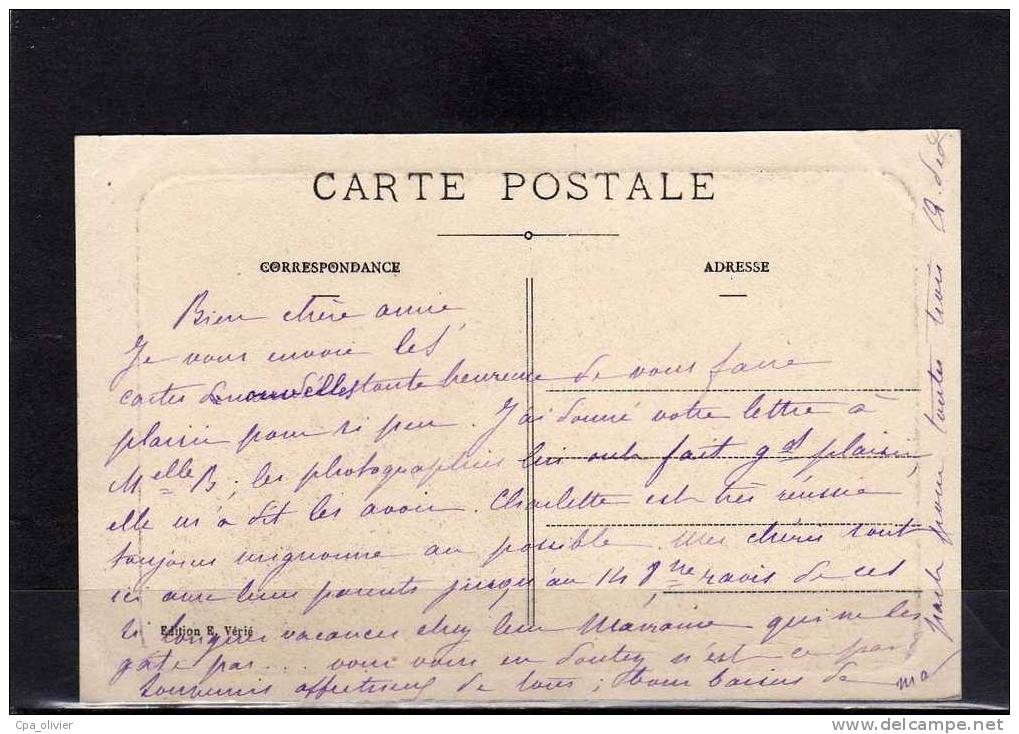 CARTE POSTALE
CORRESPONDANCE
ADRESSE
Bien chère amie
Je vous envoie les
cartes demandées toute heureuse de vous faire
plaisir pour si peu. J'ai donné votre lettre à
Melle B; les photographies lui ont fait gd plaisir,
elle m'a dit les avoir. Charlette est très réussie
toujours mignonne au possible. Mes chéris sont
ici avec leurs parents jusqu'au 14 8bre ravis de ces
si longues vacances chez leur Marraine qui ne les
gâte pas... vous vous en doutez n'est ce pas
Souvenirs affectueux de tous; bons baisers de ma
part pour toutes trois
Edition E. Vérié
Cpa_olivier
www.delcampe.net